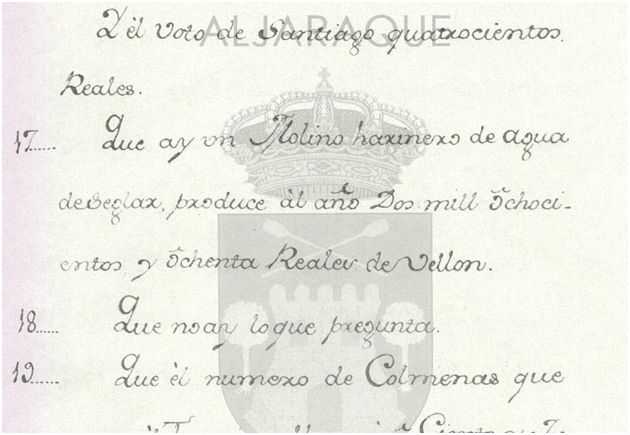 ALJARAQUE
Y él Voto de Santiago quatrocientos
Reales.
17..... Que ay vn Molino harinero de agua
de Seglar, produce ál año Dos mill ochoci-
entos y ochenta Reales de Vellon.
18..... Que no ay lo que pregunta.
19..... Que él numero de Colmenas que